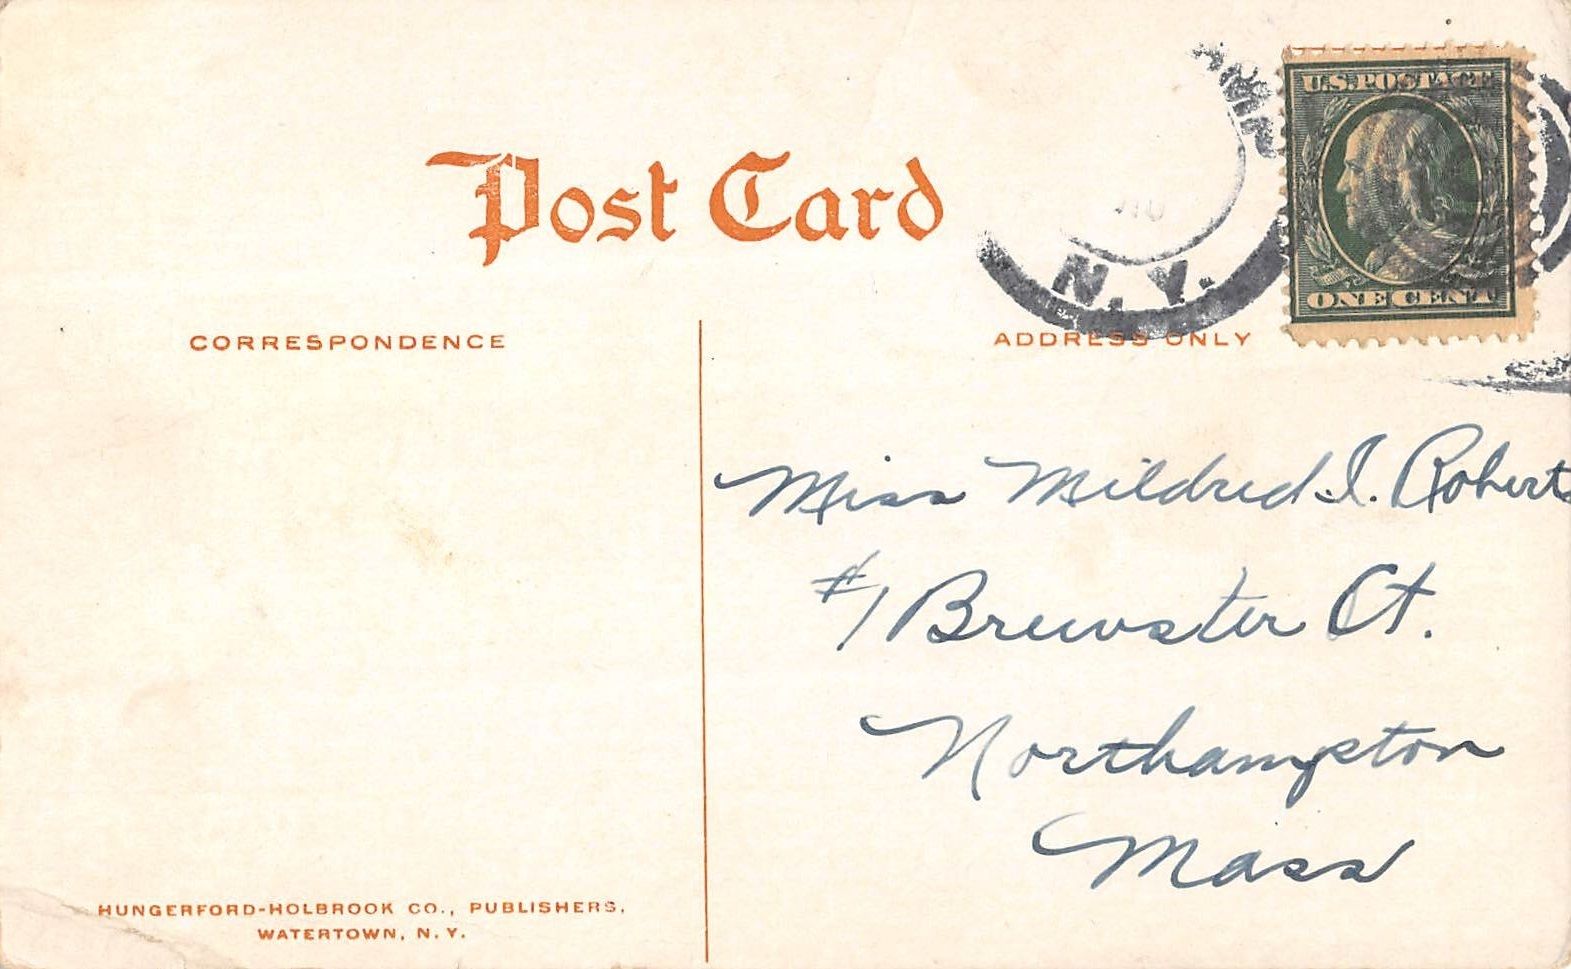 Post Card
U.S. POSTAGE
ONE CENT
N.Y.
CORRESPONDENCE
ADDRESS ONLY
Miss Mildred I. Roberts
#1 Brewster Ct.
Northampton
Mass
HUNGERFORD-HOLBROOK CO., PUBLISHERS,
WATERTOWN, N.Y.